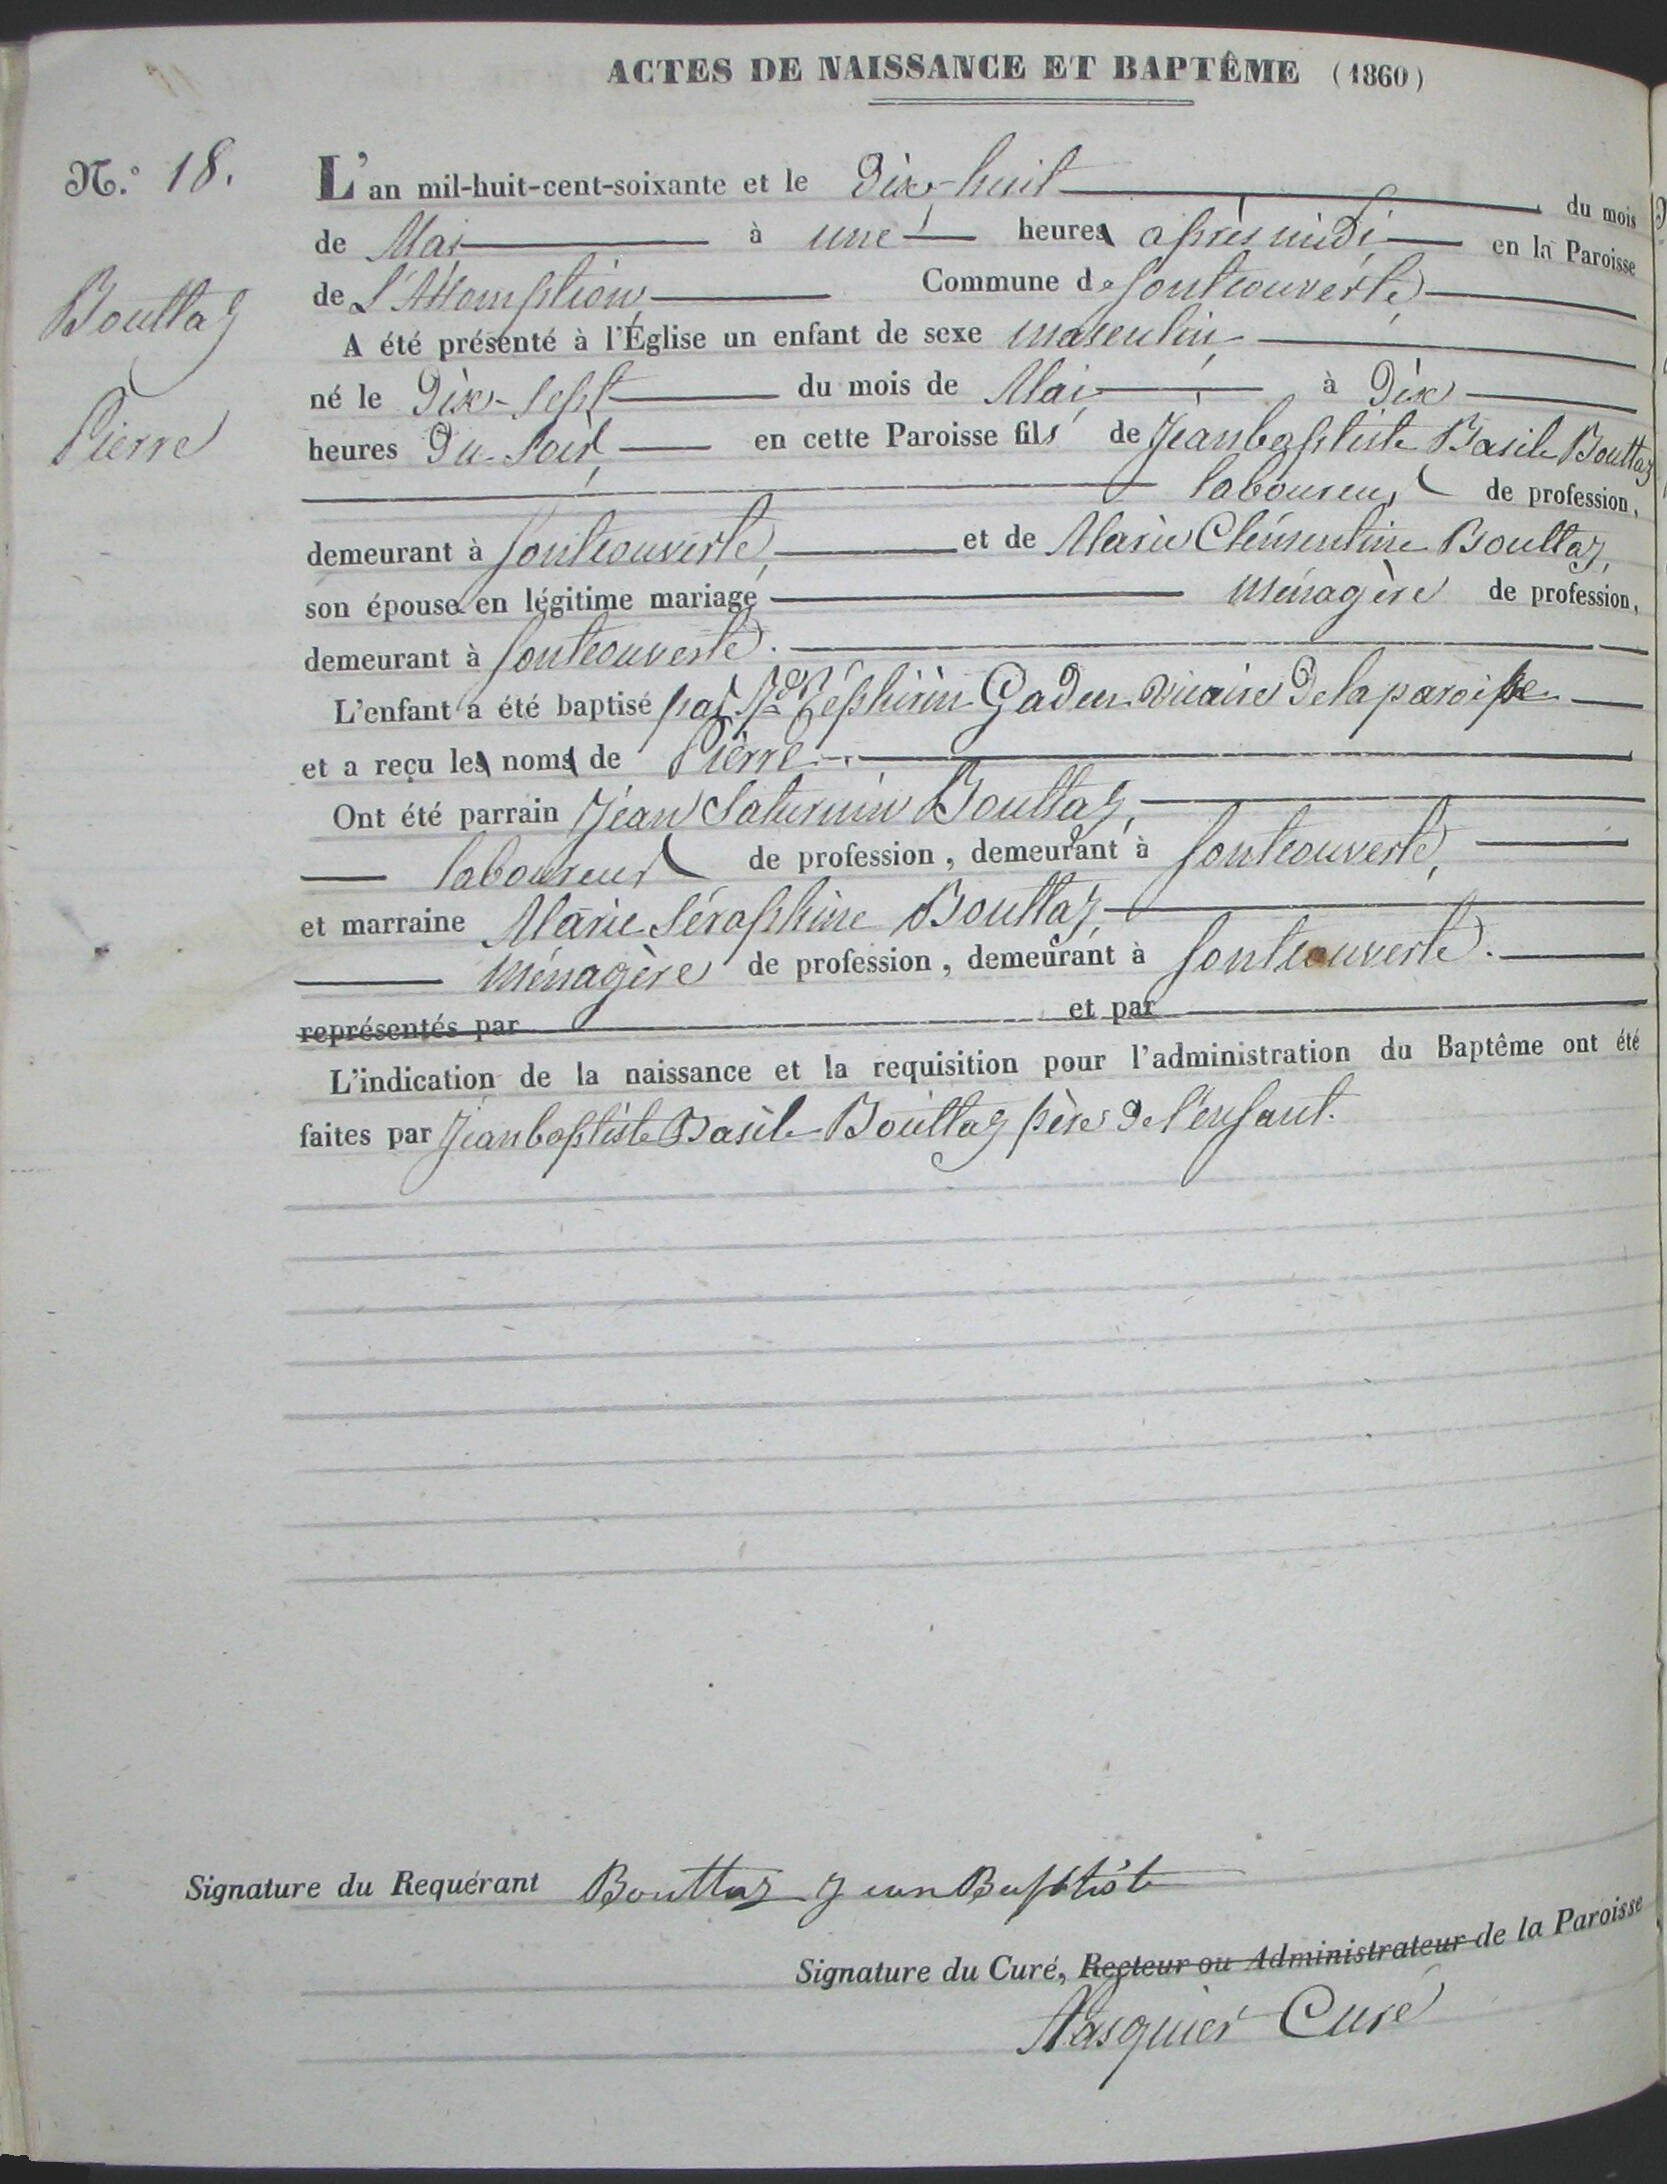 ACTES DE NAISSANCE ET BAPTÊME (1860)
N.º 18.
Bouttaz
Pierre
L'an mil-huit-cent-soixante et le Dix-huit du mois
de Mai à une heures après midi en la Paroisse
de L'Assomption Commune de fontcouverte
A été présenté à l'Église un enfant de sexe masculin
né le Dix-sept du mois de Mai à Dix
heures Du soir, en cette Paroisse fils de Jeanbaptiste Basile Bouttaz
laboureur de profession,
demeurant à fontcouverte, et de Marie Clémentine Bouttaz,
son épouse en légitime mariage ménagère de profession,
demeurant à fontcouverte.
L'enfant a été baptisé par Rd Zéphirin Gaden vicaire De la paroisse
et a reçu les noms de Pierre.
Ont été parrain Jean Saturnin Bouttaz,
laboureur de profession, demeurant à fontcouverte,
et marraine Marie Séraphine Bouttaz,
ménagère de profession, demeurant à fontcouverte.
représentés par et par
L'indication de la naissance et la requisition pour l'administration du Baptême ont été
faites par Jeanbaptiste Basile Bouttaz père De l'enfant.
Signature du Requérant Bouttaz Jean Baptiste
Signature du Curé, Recteur ou Administrateur de la Paroisse
Pasquier Curé